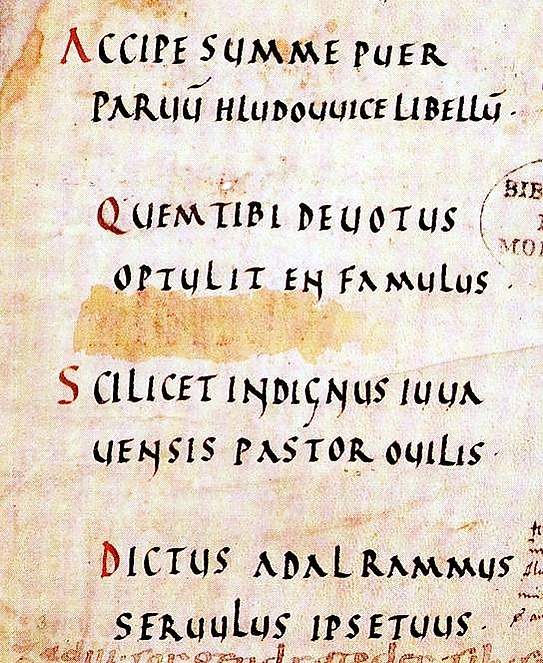 ACCIPE SUMME PUER
PARUŪ HLUDOUUICE LIBELLŪ ·
QUEM TIBI DEUOTUS
OPTULIT EN FAMULUS ·
SCILICET INDIGNUS IUUA
UENSIS PASTOR OUILIS ·
DICTUS ADALRAMMUS
SERUULUS IPSE TUUS ·
BIB
MO